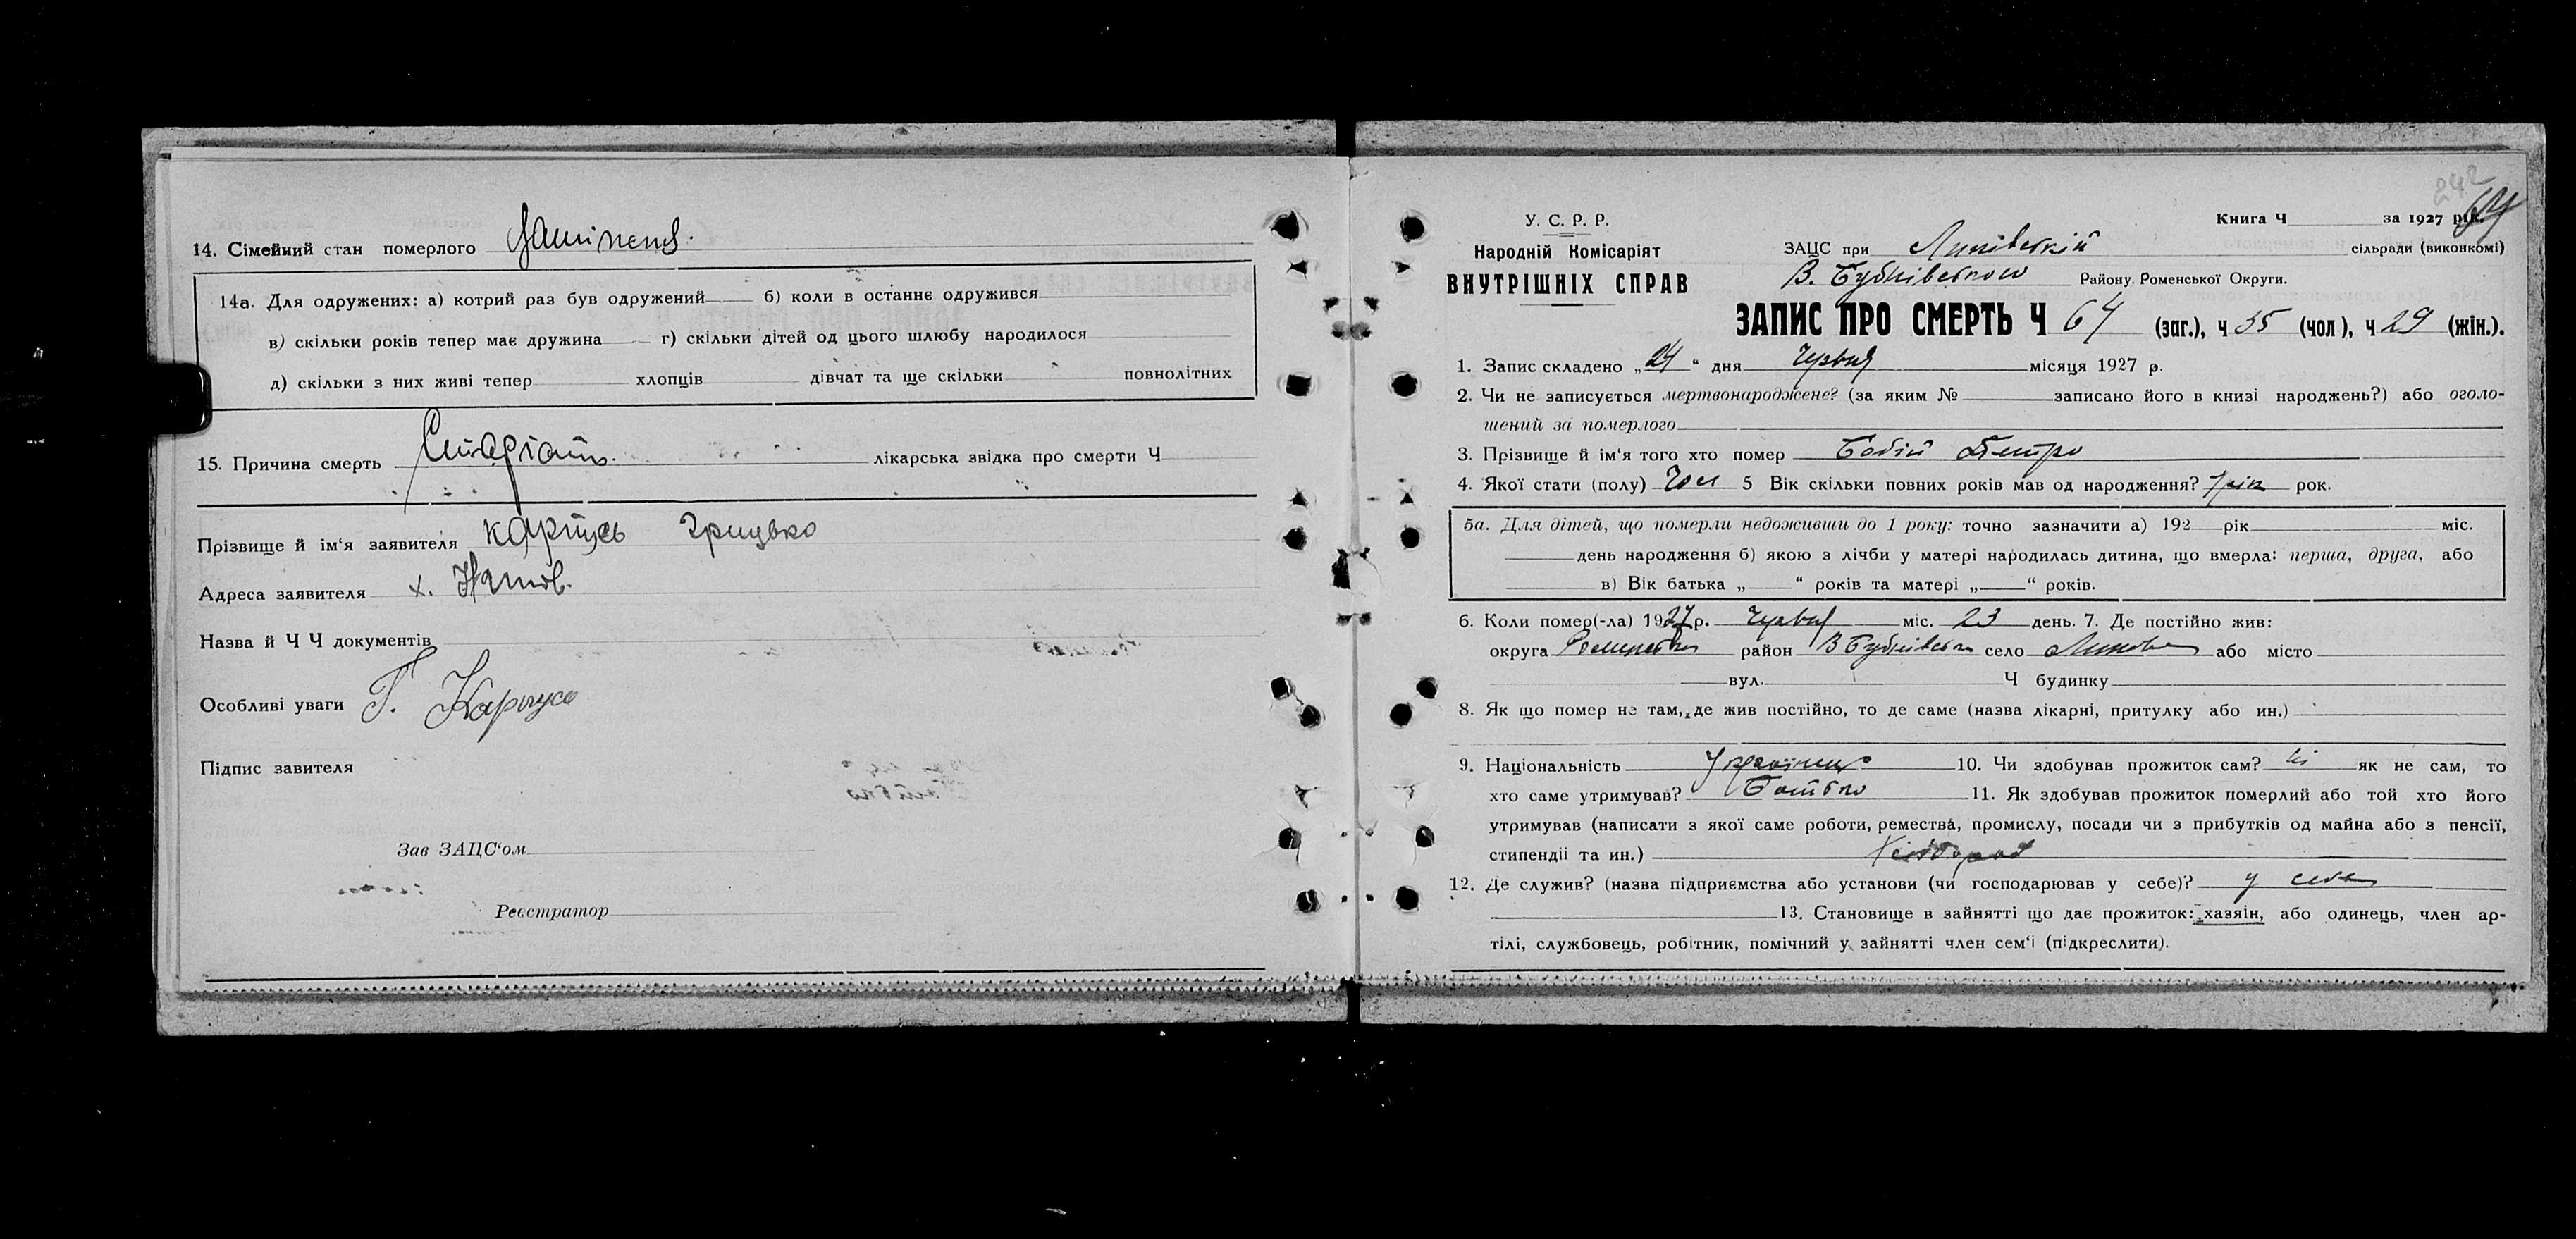 14. Сімейний стан померлого
14а. Для одружених: а) котрий раз був одружений б) коли в останнє одружився
в) скільки років тепер має дружина г) скільки дітей од цього шлюбу народилося
д) скільки з них живі тепер хлопців дівчат та ще скільки повнолітних
15. Причина смерть Старість. лікарська звідка про смерти Ч
Прізвище й ім'я заявителя Картусь Грицько
Адреса заявителя х.
Назва й Ч Ч документів
Особливі уваги Г. Картусь
Підпис завителя
Зав ЗАЦС'ом
Реєстратор
242
64
У. С. Р. Р.
Народній Комісаріят
ВНУТРІШНІХ СПРАВ
Книга Ч за 1927 рік.
ЗАЦС при Липівській сільради (виконкомі)
В. Бубнівського Району Роменської Округи.
ЗАПИС ПРО СМЕРТЬ Ч 64 (заг.), ч 35 (чол), ч 29 (жін.).
1. Запис складено „24" дня Червня місяця 1927 р.
2. Чи не записується мертвонароджене? (за яким № записано його в книзі народжень?) або оголо-
шений за померлого
3. Прізвище й ім'я того хто помер Бабій Петро
4. Якої стати (полу) Чол 5 Вік скільки повних років мав од народження? рік рок.
5а. Для дітей, що померли недоживши до 1 року: точно зазначити а) 192 рік міс.
день народження б) якою з лічби у матері народилась дитина, що вмерла: перша, друга, або
в) Вік батька „ " років та матері „ " років.
6. Коли помер(-ла) 1927 р. Червня міс. 23 день. 7. Де постійно жив:
округа Роменська район В Бубнівськ село Липове або місто
вул. Ч будинку
8. Як що помер не там, де жив постійно, то де саме (назва лікарні, притулку або ин.)
9. Національність Українець 10. Чи здобував прожиток сам? Ні як не сам, то
хто саме утримував? Батько 11. Як здобував прожиток померлий або той хто його
утримував (написати з якої саме роботи, ремества, промислу, посади чи з прибутків од майна або з пенсії,
стипендії та ин.) Хлібороб
12. Де служив? (назва підприємства або установи (чи господарював у себе)? у себе
13. Становище в зайнятті що дає прожиток: хазяін, або одинець, член ар-
тілі, службовець, робітник, помічний у зайнятті член сем'і (підкреслити).